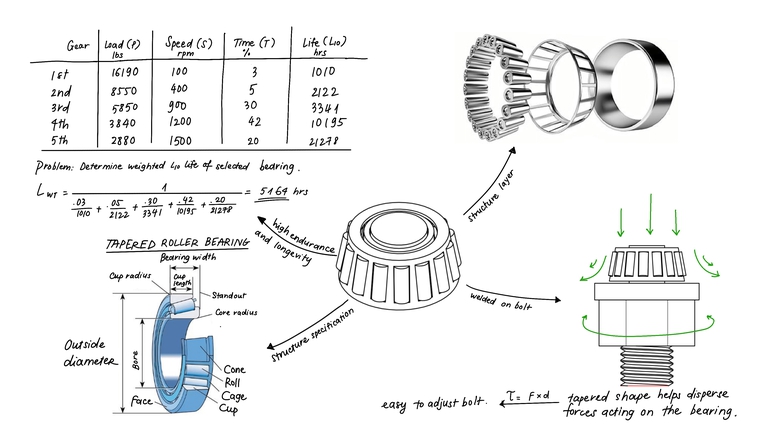 Gear Load (P) lbs Speed (S) rpm Time (T) % Life (L10) hrs
1st 16190 100 3 1010
2nd 8550 400 5 2122
3rd 5850 900 30 3341
4th 3840 1200 42 10195
5th 2880 1500 20 21278
Problem: Determine weighted L10 life of selected bearing.
LWT = 1 / (.03/1010 + .05/2122 + .30/3341 + .42/10195 + .20/21278) = 5164 hrs
high endurance
and longevity
structure layer
TAPERED ROLLER BEARING
Bearing width
Cup radius
Cup
length
Standout
Core radius
Outside
diameter
Bore
Face
Cone
Roll
Cage
Cup
structure specification
welded on bolt
easy to adjust bolt. τ = F×d tapered shape helps disperse
forces acting on the bearing.